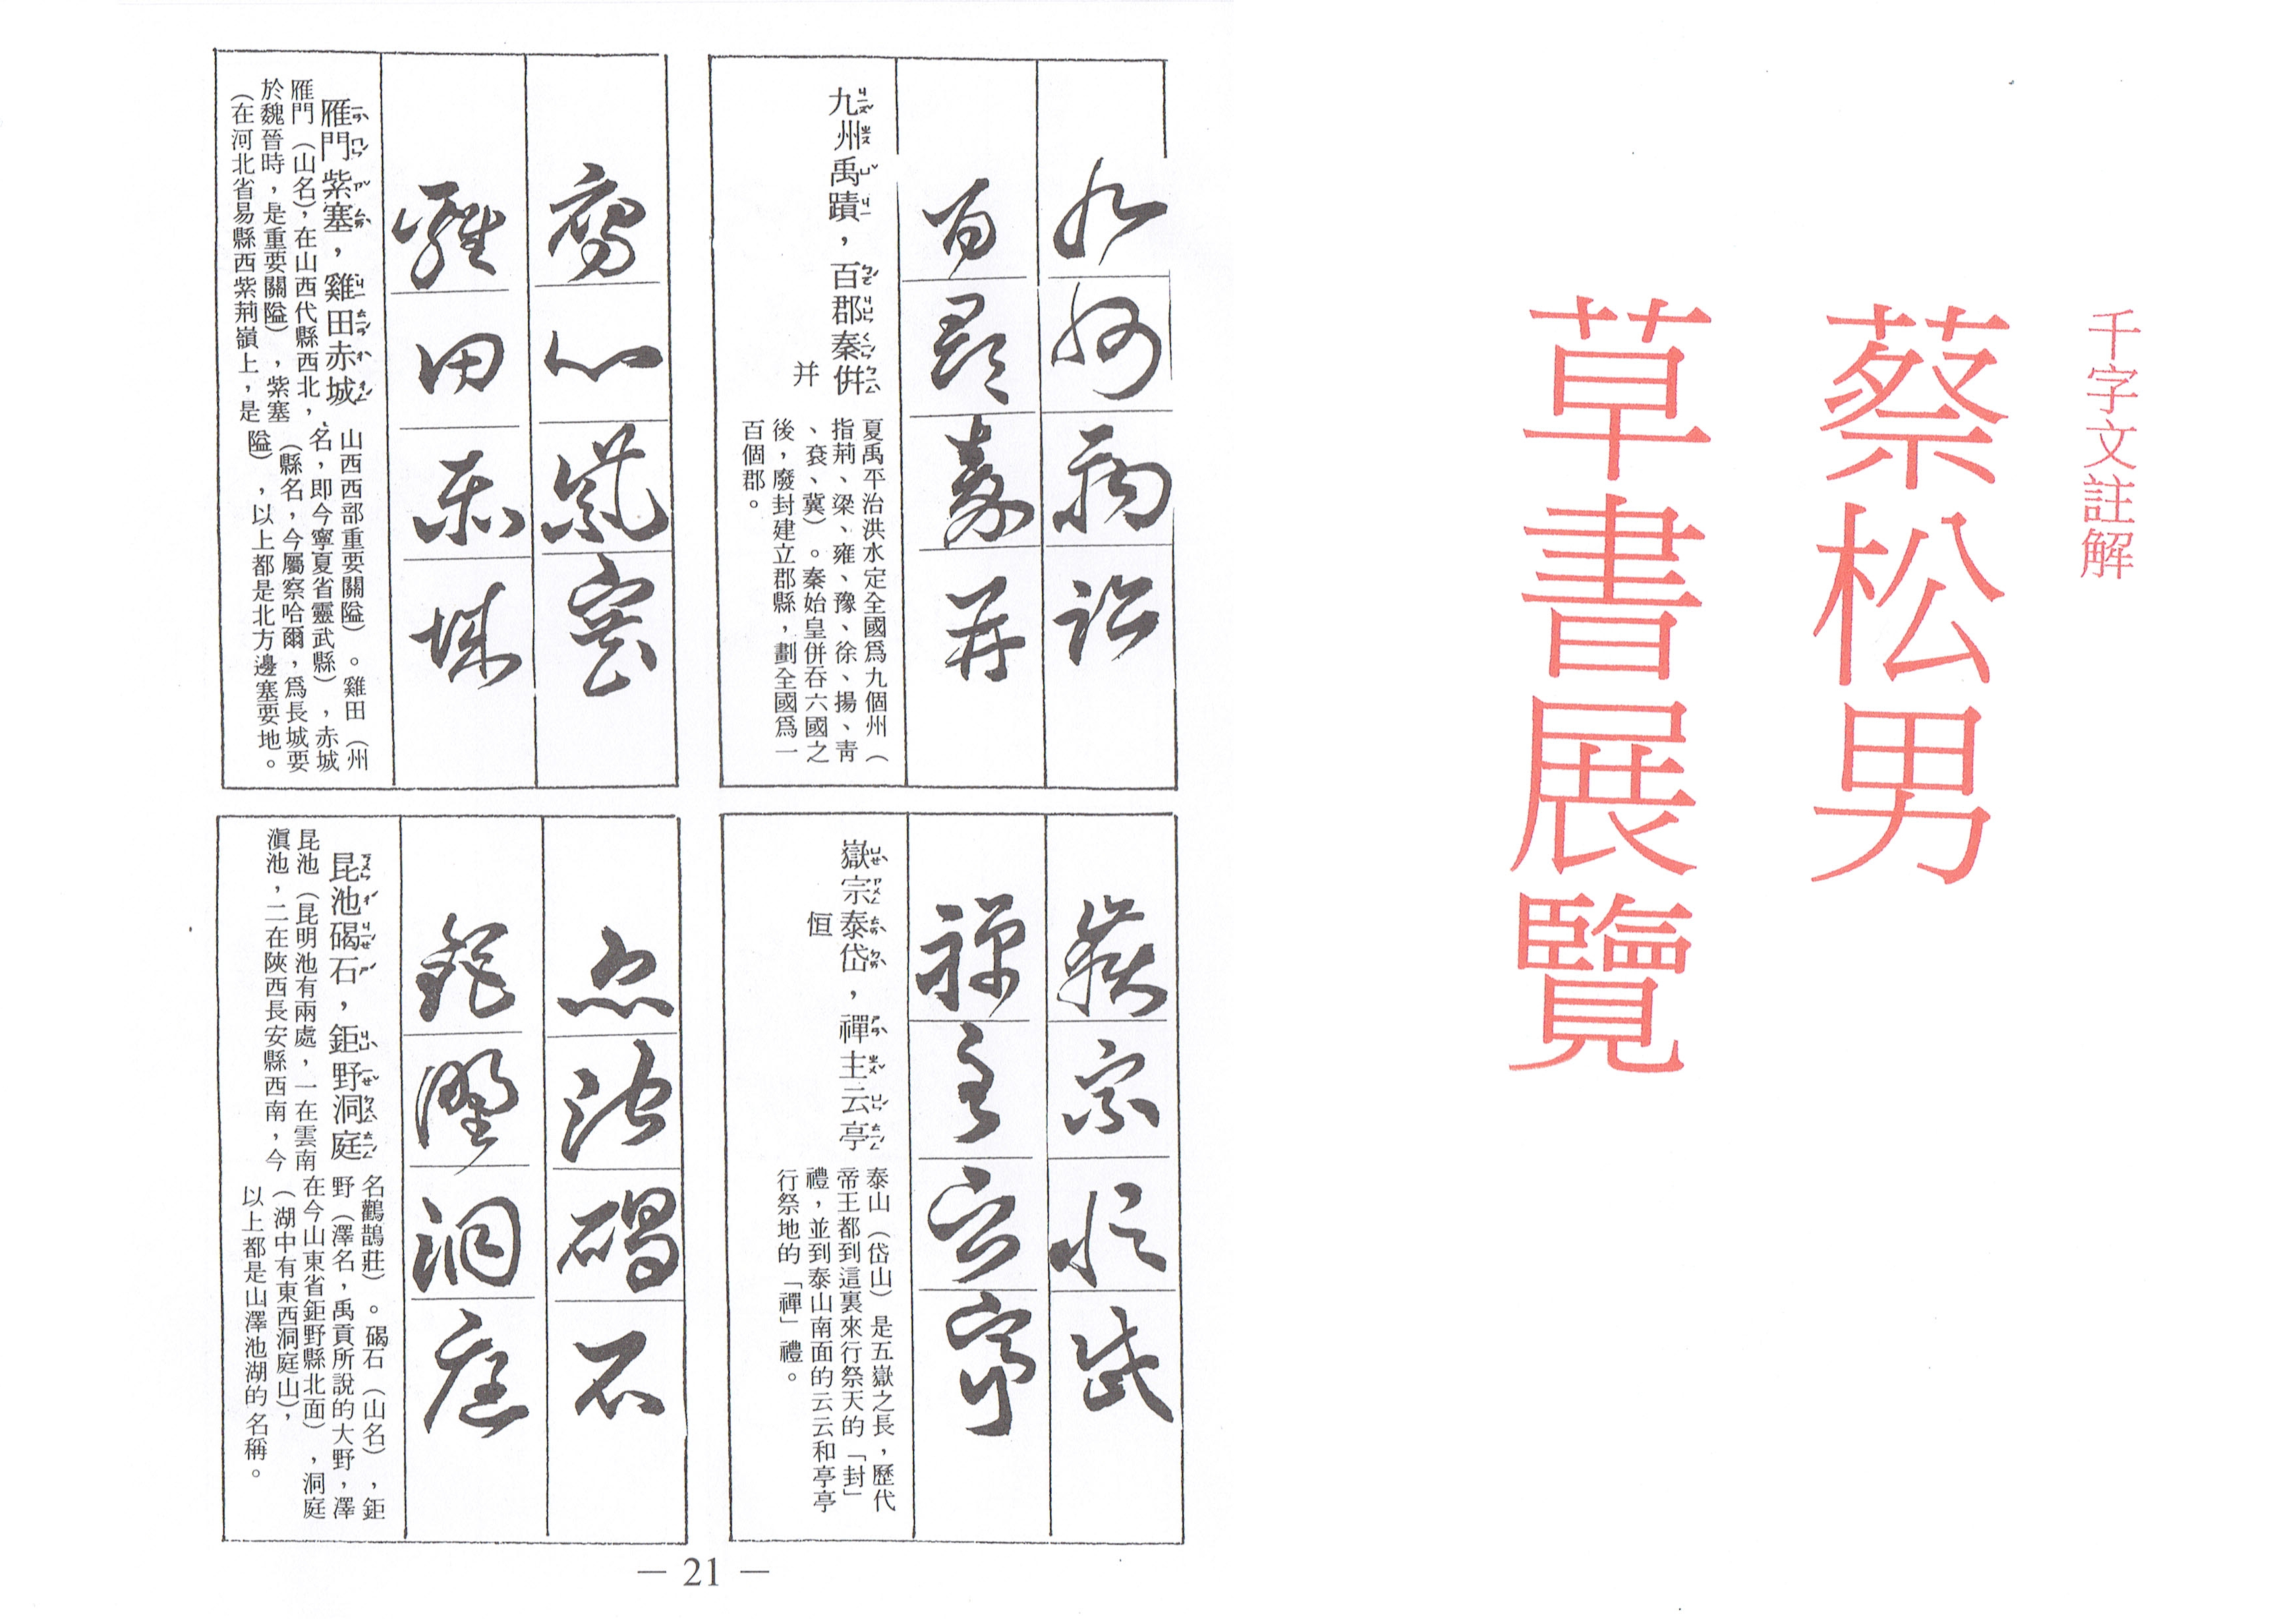 千字文註解
蔡松男
草書展覽
九州禹蹟
百郡秦并
九州禹蹟，百郡秦併
并
夏禹平治洪水定全國爲九個州（
指荊、梁、雍、豫、徐、揚、靑
、兗、冀）。秦始皇併吞六國之
後，廢封建立郡縣，劃全國爲一
百個郡。
嶽宗恒岱
禪主云亭
嶽宗泰岱，禪主云亭
恒
泰山（岱山）是五嶽之長，歷代
帝王都到這裏來行祭天的「封」
禮，並到泰山南面的云云和亭亭
行祭地的「禪」禮。
雁門紫塞
雞田赤城
雁門紫塞，雞田赤城
雁門（山名），在山西代縣西北，
於魏晉時，是重要關隘），紫塞
（在河北省易縣西紫荊嶺上，是
山西西部重要關隘）。雞田（州
名，即今寧夏省靈武縣），赤城
（縣名，今屬察哈爾，爲長城要
隘），以上都是北方邊塞要地。
昆池碣石
鉅野洞庭
昆池碣石，鉅野洞庭
昆池（昆明池有兩處，一在雲南
滇池，二在陝西長安縣西南，今
名鸛鵲莊）。碣石（山名），鉅
野（澤名，禹貢所說的大野，澤
在今山東省鉅野縣北面），洞庭
（湖中有東西洞庭山），
以上都是山澤池湖的名稱。
— 21 —